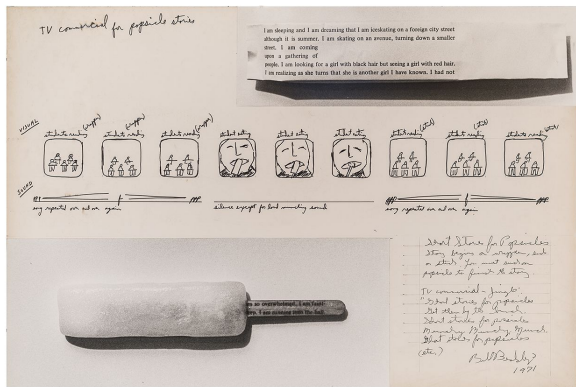 TV commercial for popsicle stories
I am sleeping and I am dreaming that I am iceskating on a foreign city street
although it is summer. I am skating on an avenue, turning down a smaller
street. I am coming
upon a gathering of
people. I am looking for a girl with black hair but seeing a girl with red hair.
I am realizing as she turns that she is another girl I have known. I had not
VISUAL
students reading (wrapper)
students reading (wrapper)
students reading (wrapper)
student eating
student eating
student eating
students reading (stick)
students reading (stick)
students reading (stick)
SOUND
song repeated over and over again
silence except for loud munching sound
song repeated over and over again
Short Stories for Popsicles
Story begins on wrapper, ends
on stick. You must
popsicle to finish the story
TV commercial - jingle:
"Short stories for popsicles
Get them by the bunch.
Short stories for popsicles
Munchy, Munchy, Munch.
Short stories for popsicles
(etc.)
1971
so overwhelmed. I am